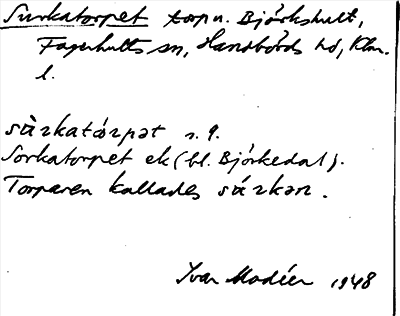 Surkatorpet torp u. Björkshult,
Fagerhults sn, Handbörds hd, Klm.
l.
sùrkatórpət n. 9.
Sorkatorpet ek (bl. Björkedal).
Torparen kallades súrkən.
Ivar Modéer 1948